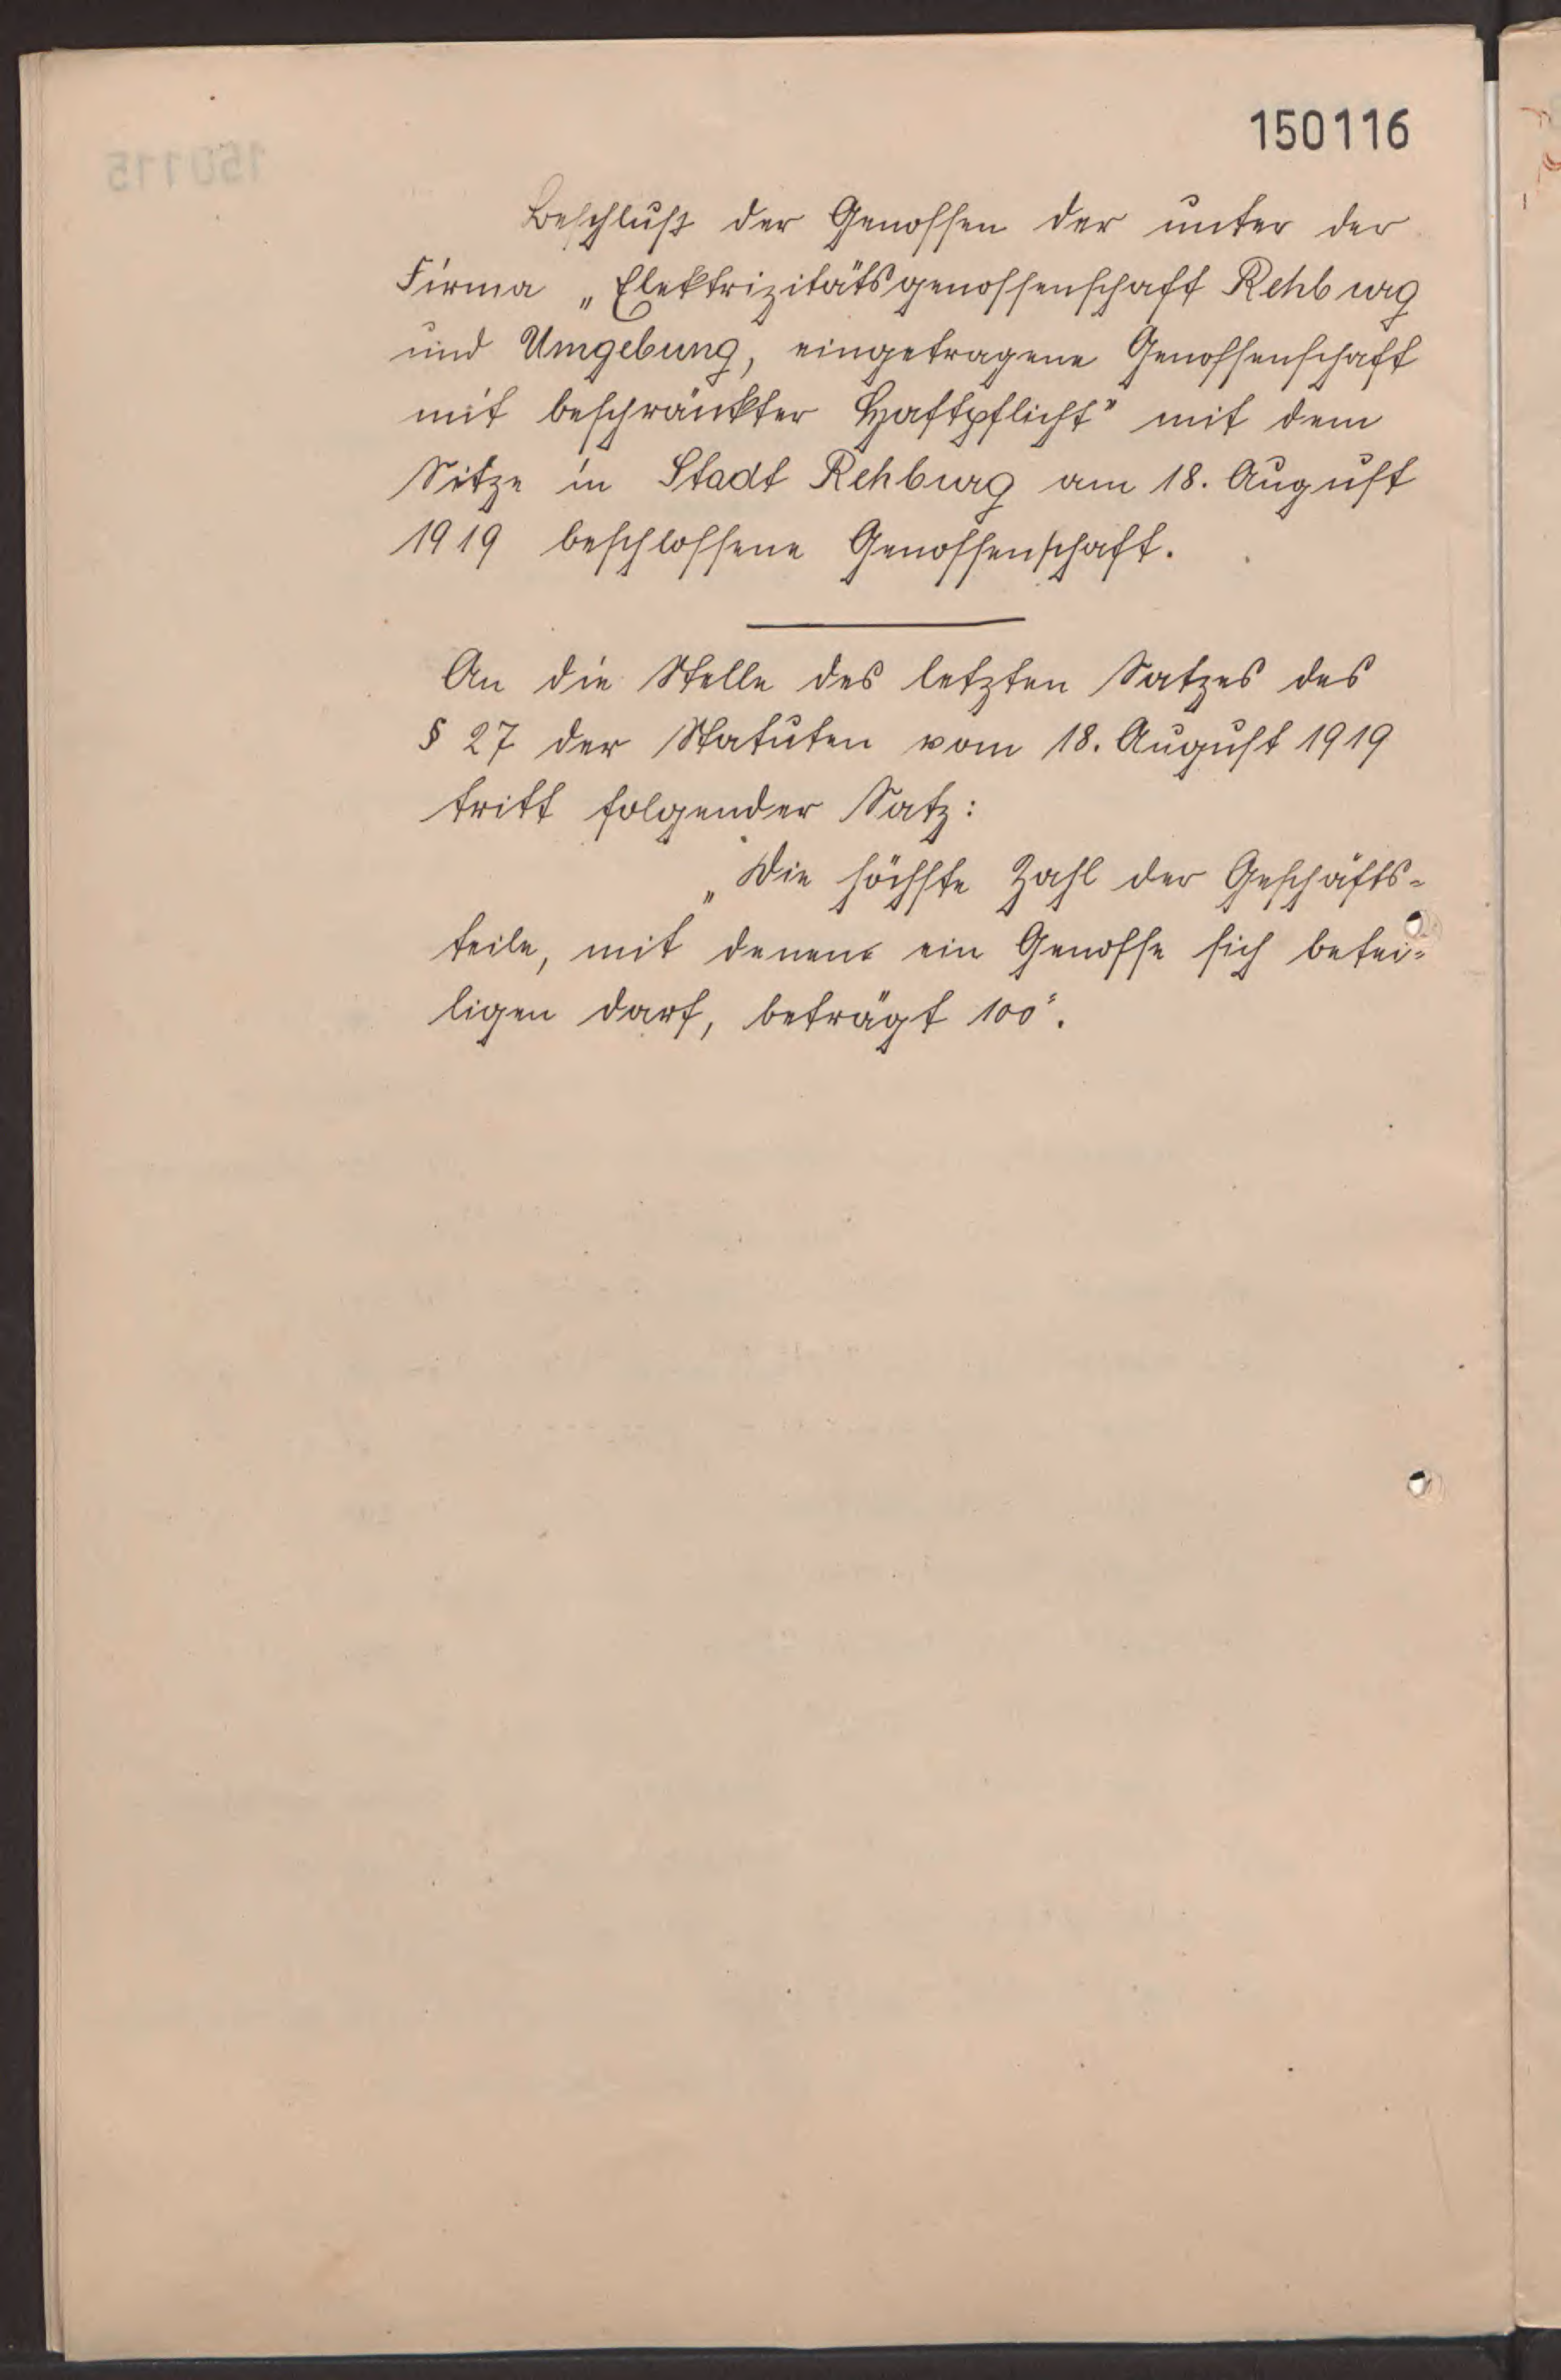 150116
Beschluß der Genossen der unter der
Firma „Elektrizitätsgenossenschaft Rehburg
und Umgebung, eingetragene Genossenschaft
mit beschränkter Haftpflicht" mit dem
Sitze in Stadt Rehburg am 18. August
1919 beschlossene Genossenschaft.
An die Stelle des letzten Satzes des
§ 27 der Statuten vom 18. August 1919
tritt folgender Satz:
„Die höchste Zahl der Geschäfts-
teile, mit denen ein Genosse sich betei-
ligen darf, beträgt 100".
150115